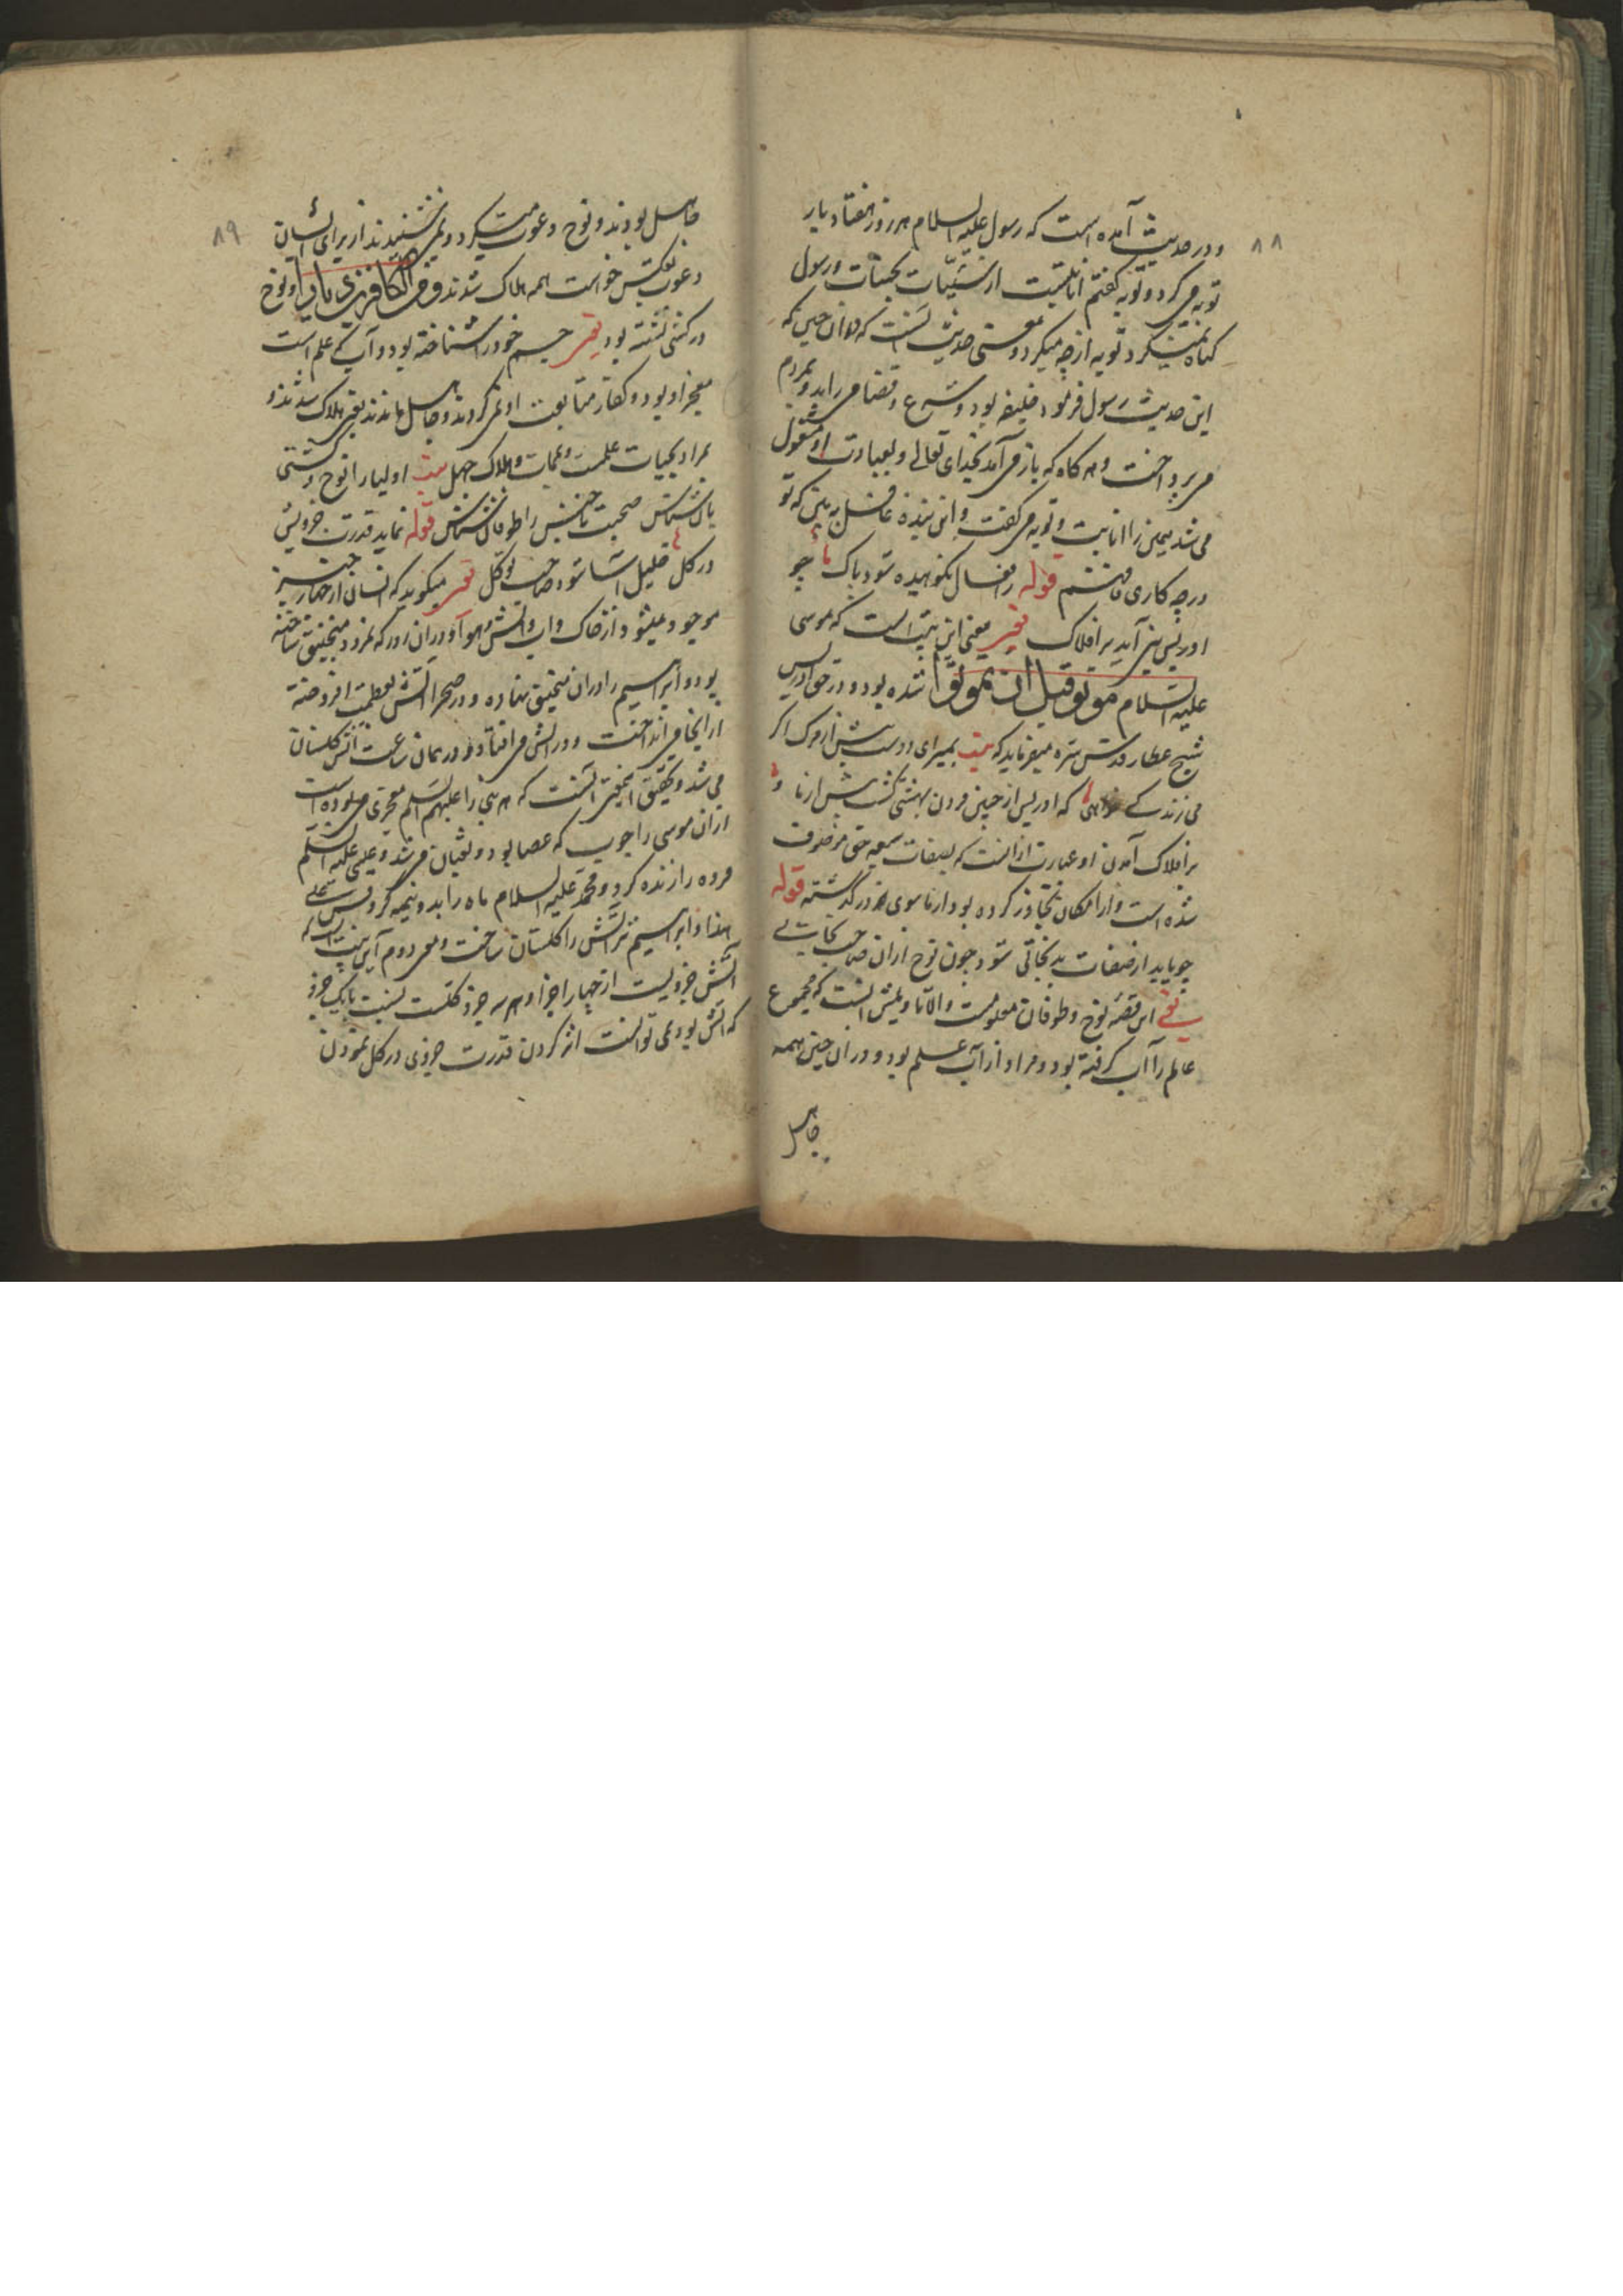 ٨٨
و در حدیث آمده است که رسول علیه السلام هر روز هفتاد بار
توبه می کرد و توبه گفتم انابتست از سیّئات بحسنات و رسول
گناه نمیکرد توبه از چه میکرد و معنی حدیث آنست که در آن حین که
این حدیث رسول فرمود خلیفه بود و شرع و قضا می راند و بمردم
می پرداخت و هر گاه که باز می آمد بخدای تعالی و بعبادت او مشغول
می شد همین را انابت و توبه می گفت و این بنده غافل ببین که تو
در چه کاری قوله ز افعال نکوهیده شود پاک چو
ادریس نبی آید بر افلاک یعنی معنی این بیت است که موسی
علیه السلام موتوا قبل ان تموتوا شده بود و در حق ادریس
شیخ عطار قدس سره میفرماید که بیت بمیر ای دوست پیش از مرگ اگر
می زندگی خواهی که ادریس از چنین مردن بهشتی گشت پیش از ما و
بر افلاک آمدن او عبارت از آنست که بصفات سبعه حق موصوف
شده است و از امکان تجاوز کرده بود و از ماسوی در گذشته قوله
چو یابد از صفات بد نجاتی شود چون نوح از آن صاحب ثباتی
یعنی این قصه نوح و طوفان معلومست و الا تاویلش آنست که مجموع
عالم را آب گرفته بود و مراد از آب علم بود و در آن حین همه
جاهل
٨٩
جاهل بودند و نوح دعوت میکرد و نمی شنیدند از برای ایشان
دعوت خواست همه هلاک شدند من الکافرین دیارا و نوح
در کشتی نشسته بود یعنی جسم خود را شناخته بود و آب که علم است
معجز او بود و کفار متابعت او نمی کردند و جاهل ماندند یعنی هلاک شدند و
مراد بحیات علمست و ممات و هلاک جهل بیت اولیا را نوح و کشتی
بان شناس صحبت ناجنس را طوفان شناس قوله نماید قدرت جزویش
در کل خلیل آسا شود صاحب توکل یعنی میگوید که انسان از چهار چیز
موجود میشود از خاک و آب و آتش و هوا و در آن دور که نمرود منجنیق ساخته
بود و ابراهیم را در آن منجنیق نهاده و در صحرا آتش بعظمت افروخته
از آنجا می انداخت و در آتش می افتاد و در همان ساعت آتش گلستان
می شد و تحقیق این آنست که هر نبی را علیهم السلم معجزی می بوده است
از آن موسی را چوب که عصا بود و ثعبان می شد و عیسی علیه السلم
مرده را زنده کرد و محمد علیه السلام ماه را بدو نیمه کرد پس علی
هذا ابراهیم نیز آتش را گلستان ساخت و معنی دوم آنست که
آتش جزویست از چهار اجزا و هر سه جزو کلست نسبت بآن یک جزو
که آتش بود می توانست اثر کردن قدرت جزوی در کل نمودن